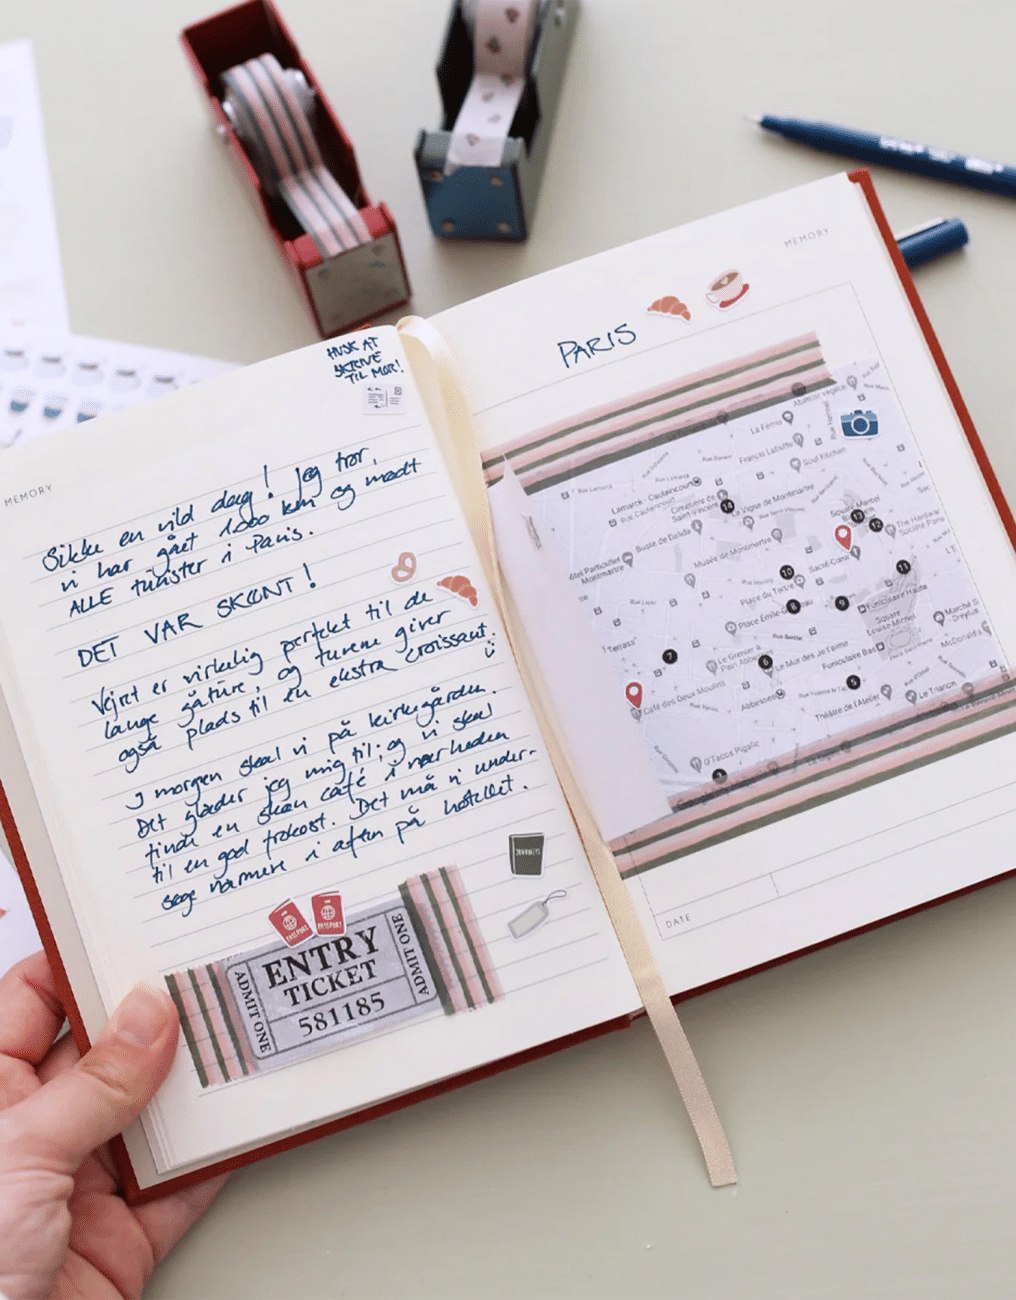 HUSK AT
SKRIVE
TIL MOR!
MEMORY
Sikke en vild dag! Jeg tror,
vi har gået 1.000 km og mødt
ALLE turister i Paris.
DET VAR SKØNT!
Vejret er virkelig perfekt til de
lange gåture, og turene giver
også plads til en ekstra croissant.
I morgen skal vi på kirkegården.
Det glæder jeg mig til, og vi skal
finde en skøn café i nærheden
til en god frokost. Det må vi under-
søge nærmere i aften på hotellet.
JOURNEYS
PASSPORT
PASSPORT
ADMIT ONE
ENTRY
TICKET
581185
ADMIT ONE
MEMORY
PARIS
Abattoir Végétal
La Fémo
Francis Labutte
Soul Kitchen
Lamarck - Caulaincourt
Rue Caulaincourt
Rue Lamarck
Cimetière
Saint-Vincent
14
La Vigne de Montmartre
Square Marcel
13
12
The Hardware
Société Paris
Buste de Dalida
Musée de Montmartre
Hôtel Particulier
Montmartre
Sacré-Cœur
10
11
Place du Tertre
8
9
Funiculaire Haute
Place Émile-Goudeau
Square
Louise-Michel
Marché S
Dreyfus
McDonald's
Terrass
7
Le Grenier à
Pain Abbesses
6
Le Mur des Je t'aime
Funiculaire Bas
Rue Berthe
Café des Deux Moulins
Abbesses
5
Théâtre de l'Atelier
Le Trianon
O'Tacos Pigalle
DATE